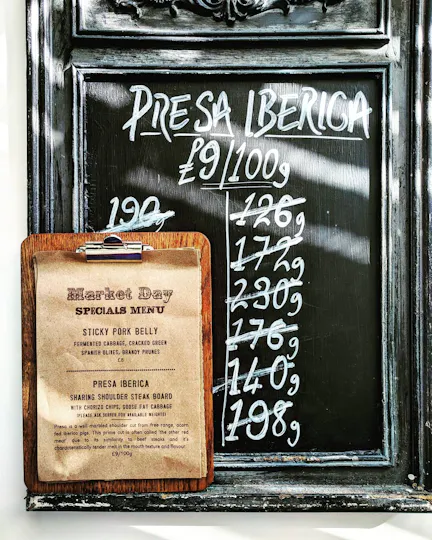 PRESA IBERICA
£9/100g
190g
126g
172g
230g
176g
140g
198g
Market Day
SPECIALS MENU
STICKY PORK BELLY
FERMENTED CABBAGE, CRACKED GREEN
SPANISH OLIVES, BRANDY PRUNES
£8
PRESA IBERICA
SHARING SHOULDER STEAK BOARD
WITH CHORIZO CHIPS, GOOSE FAT CABBAGE
(PLEASE ASK SERVER FOR AVAILABLE WEIGHTS)
Presa is a well marbled shoulder cut from free range, acorn
fed Iberico pigs. This prime cut is often called 'the other red
meat' due to its similarity to beef steaks and it's
characteristically tender melt in the mouth texture and flavour.
£9/100g